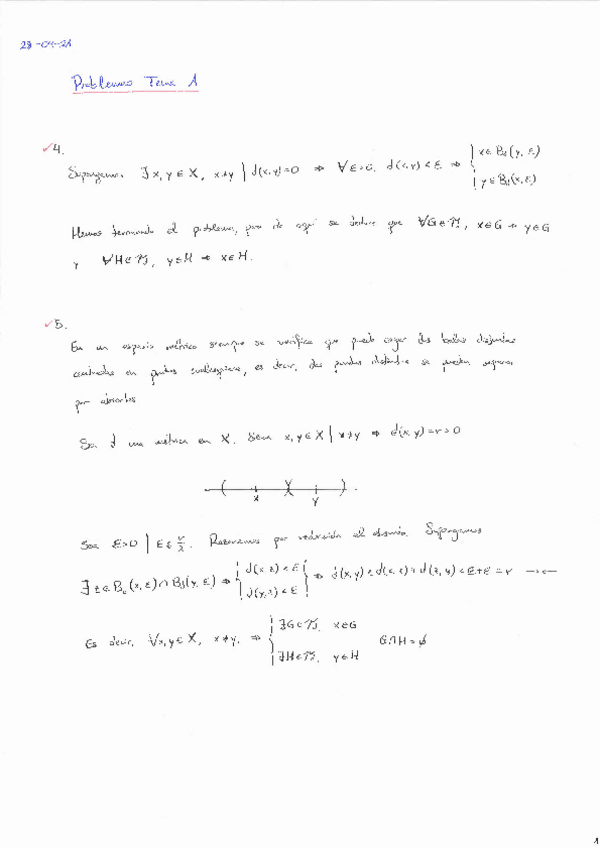 Problemas Tema 1
4.
Supongamos ∃ x, y ∈ X, x ≠ y | d(x,y) = 0 ⇒ ∀ε > 0, d(x,y) < ε ⇒ { x ∈ B_d(y, ε)
y ∈ B_d(x, ε)
Hemos terminado el problema, pues de aquí se deduce que ∀G ∈ 𝒯_d, x ∈ G ⇒ y ∈ G
y ∀H ∈ 𝒯_d, y ∈ H ⇒ x ∈ H.
5.
En un espacio métrico siempre se verifica que puedo coger dos bolas disjuntas
centradas en puntos cualesquiera, es decir, dos puntos distintos se pueden separar
por abiertos
Sea d una métrica en X. Sean x, y ∈ X | x ≠ y ⇒ d(x,y) = r > 0
x y
Sea ε > 0 | ε ≤ r/2. Razonamos por reducción al absurdo. Supongamos
∃ z ∈ B_d(x, ε) ∩ B_d(y, ε) ⇒ { d(x,z) < ε
d(y,z) < ε } ⇒ d(x,y) ≤ d(x,z) + d(z,y) < ε + ε = r →←
Es decir, ∀x, y ∈ X, x ≠ y, ⇒ { ∃G ∈ 𝒯_d, x ∈ G
∃H ∈ 𝒯_d, y ∈ H G ∩ H = ∅
1